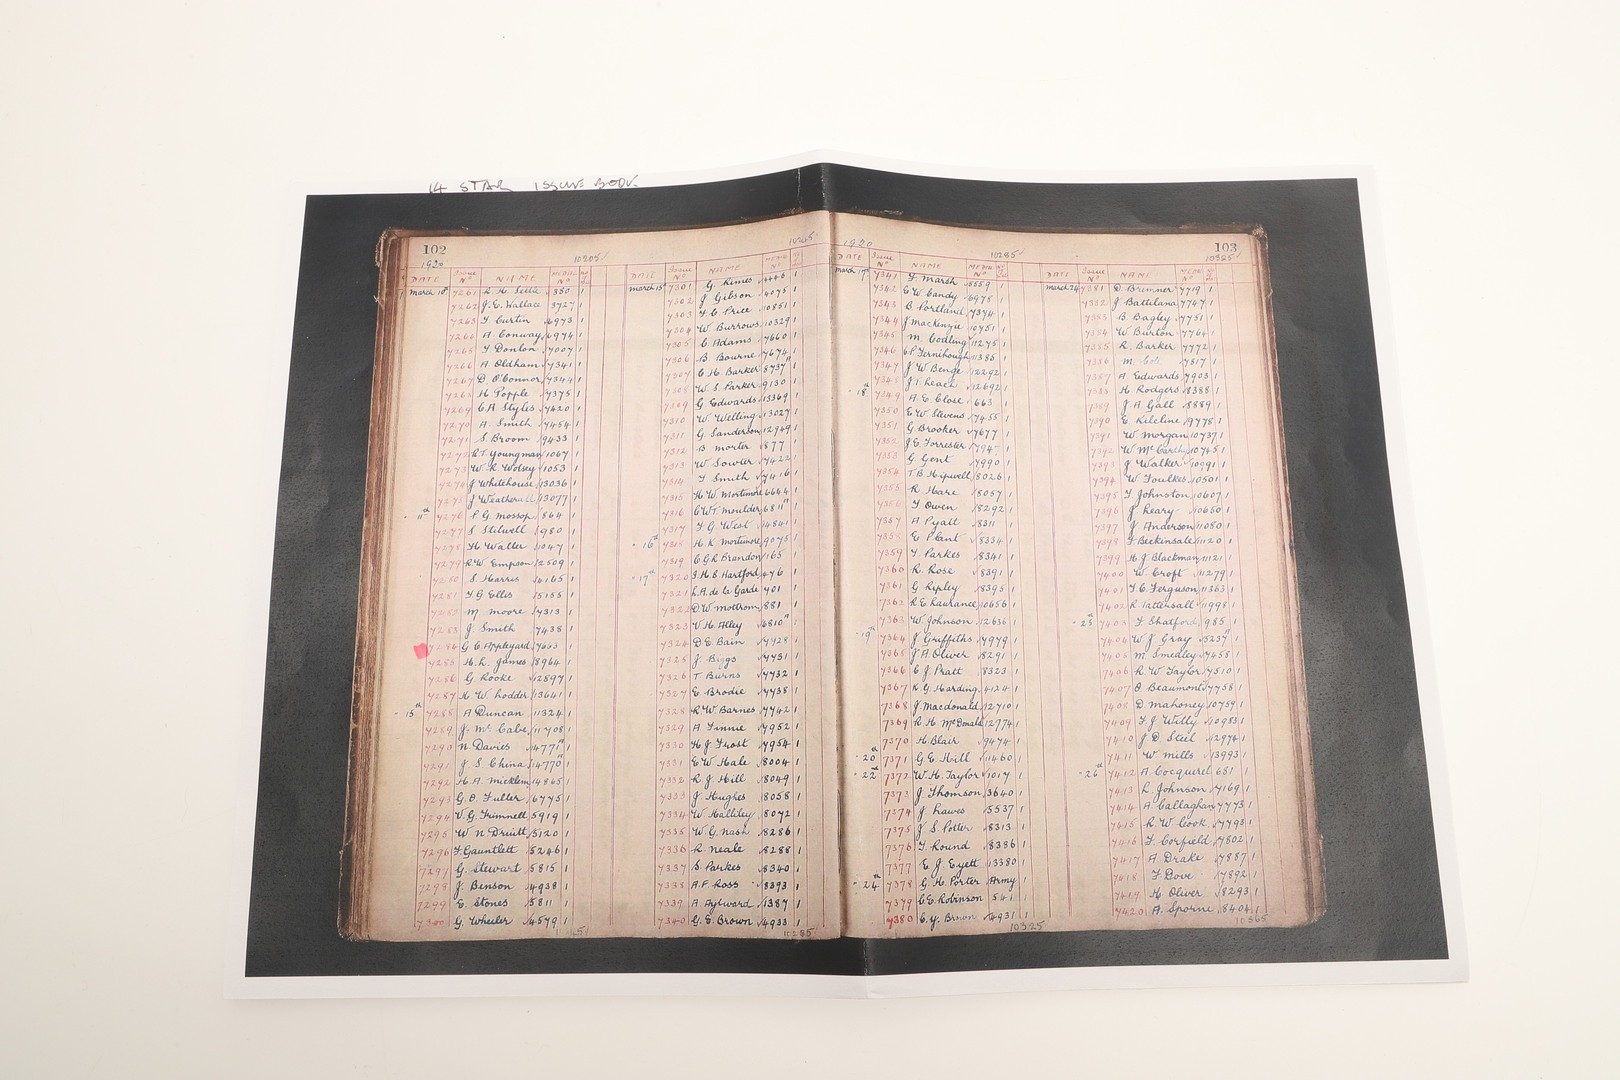 14 STAR ISSUE BOOK
102
1920
10205
DATE Issue No NAME MEDAL No
March 10th 7261 R. H. Settle 380 1
7262 J. E. Wallace 3727 1
7263 F Curtin 6973 1
7264 A Conway 6974 1
7265 F Donlon 7007 1
7266 A Oldham 7341 1
7267 D. O'Connor 7344 1
7268 H Popple 7375 1
7269 C A Styles 7420 1
7270 A. Smith 7454 1
7271 S Broom 9433 1
7272 R.T. Youngman 1067 1
7273 W. R. Wolsey 1053 1
7274 J Whitehouse 13036 1
7275 J Weatherall 13077 1
11th 7276 P G Mossop 864 1
7277 S Stilwell 980 1
7278 H Walter 1047 1
7279 R.W. Empson 2509 1
7280 S Harris 4165 1
7281 F.G Ellis 5155 1
7282 M Moore 7313 1
7283 J Smith 7438 1
7284 G C Appleyard 7663 1
7285 H. R. James 8964 1
7286 G Rooke 12897 1
7287 H. W. Lodder 13641 1
15th 7288 A Duncan 11324 1
7289 J. McCabe 11708 1
7290 N. Davies 14771 1
7291 J. S China 14770 1
7292 H A Micklem 14865 1
7293 G. D. Fuller 6775 1
7294 V. G. Trimnell 5919 1
7295 W N Druitt 5120 1
7296 F. Gauntlett 5246 1
7297 G. Stewart 5815 1
7298 J. Benson 4938 1
7299 E Stones 5811 1
7300 G. Wheeler 4579 1
DATE Issue No NAME MEDAL No
March 15th 7301 G. Rimes 1
7302 J Gibson 4075 1
7303 F C Price 10851 1
7304 W. Burrows 10329 1
7305 C Adams 7660 1
7306 B Bourne 7674 1
7307 C H Barker 8737
7308 W S. Parker 9130 1
7309 G Edwards 13369 1
7310 W. Welling 13027 1
7311 G. Sanderson 12949 1
7312 B Morter 877 1
7313 W Sowter 7422 1
7314 F Smith 7416 1
7315 H W. Mortimore 6644 1
7316 C W T Moulder 6811
7317 F. G. West 14841 1
16th 7318 H. K. Mortimore 9075 1
7319 C G R Brandon 165 1
17th 7320 J. H. B Hartford 476 1
7321 L. A. de la Garde 701 1
7322 D W Mottrom 881 1
7323 V H. Alley 6810
7324 D E Bain 7728 1
7325 J. Biggs 7731 1
7326 T Burns 7732 1
7327 E Brodie 7738 1
7328 R. W. Barnes 7742 1
7329 A Finnie 7952 1
7330 H J Frost 7954 1
7331 E W Hale 8004 1
7332 R. J Hill 8049 1
7333 J Hughes 8058 1
7334 W Halliley 8072 1
7335 W G. Nash 8286 1
7336 R. Neale 8288 1
7337 S. Parkes 8340 1
7338 A. F. Ross 8393 1
7339 A Aylward 1387 1
7340 G. E Brown 4933 1
10285
1920
10285
103
10325
DATE Issue No NAME MEDAL No
March 17th 7341 F Marsh 8559 1
7342 E W. Candy 6978 1
7343 B Portland 7374 1
7344 J Mackenzie 10751 1
7345 M Codling 11275 1
7346 C P Fernihough 11385 1
7347 J W Benge 12292 1
7348 J. T. Leace 12692 1
18th 7349 A E Close 663 1
7350 E W. Stevens 7455 1
7351 G Brooker 7677 1
7352 J. E. Forrester 1
7353 G Gent 7990 1
7354 T. B Hipwell 8026 1
7355 R. Hare 8057 1
7356 F Owen 8292 1
7357 A Pyatt 8311 1
7358 E Plant 8334 1
7359 F. Parkes 8341 1
7360 R Rose 8391 1
7361 G Ripley 8395 1
7362 R E Laurance 10656 1
7363 W Johnson 12636 1
19th 7364 J Griffiths 7979 1
7365 J A Oliver 8291 1
7366 C J Pratt 8323 1
7367 K. G. Harding 4124 1
7368 J. Macdonald 12710 1
7369 R H McDonald 12774 1
7370 H. Blair 9474 1
20th 7371 G. E. Hill 11460 1
22nd 7372 W. H. Taylor 1017 1
7373 J Thomson 3640 1
7374 J Lawes 5537 1
7375 J. S Potter 8313 1
7376 F. Round 8386 1
7377 E. J. Eyett 13380 1
24th 7378 G. H. Porter Army 1
7379 C. E. Robinson 541 1
7380 C. y. Brown 4931 1
10325
DATE Issue No NAME MEDAL No
March 24 7381 D. Brimner 7719 1
7382 J Battilana 7747 1
7383 B. Bagley 7751 1
7384 W Burton 7764 1
7385 R. Barker 7772 1
7386 M Cole 7817 1
7387 A. Edwards 7903 1
7388 H Rodgers 8388 1
7389 J A Gall 8889 1
7390 E Kilcline 9778 1
7391 W Morgan 10737 1
7392 W McCarthy 10745 1
7393 J Walker 10991 1
7394 W Foulkes 10501 1
7395 F Johnston 10607 1
7396 J Keary 10650 1
7397 J Anderson 11080 1
7398 F. Beckinsale 11120 1
7399 H. J. Blackman 11121 1
7400 W. Croft 11279 1
7401 F. C. Ferguson 11363 1
7402 R Tattersall 11998 1
25th 7403 F Shatford 985 1
7404 W. J. Gray 5237
7405 M Smedley 7458 1
7406 R W. Taylor 7510 1
7407 O Beaumont 7758 1
7408 D. Mahoney 10759 1
7409 F. J Willy 10983 1
7410 J D Steel 12974 1
7411 W. Mills 13993 1
26th 7412 A Cocquerel 681 1
7413 R Johnson 7169 1
7414 A Callaghan 7773 1
7415 R. W Cook 7793 1
7416 F. Corfield 7802 1
7417 A. Drake 7887 1
7418 F Dove 7892 1
7419 H Oliver 8293 1
7420 A. Sporne 8404 1
10365